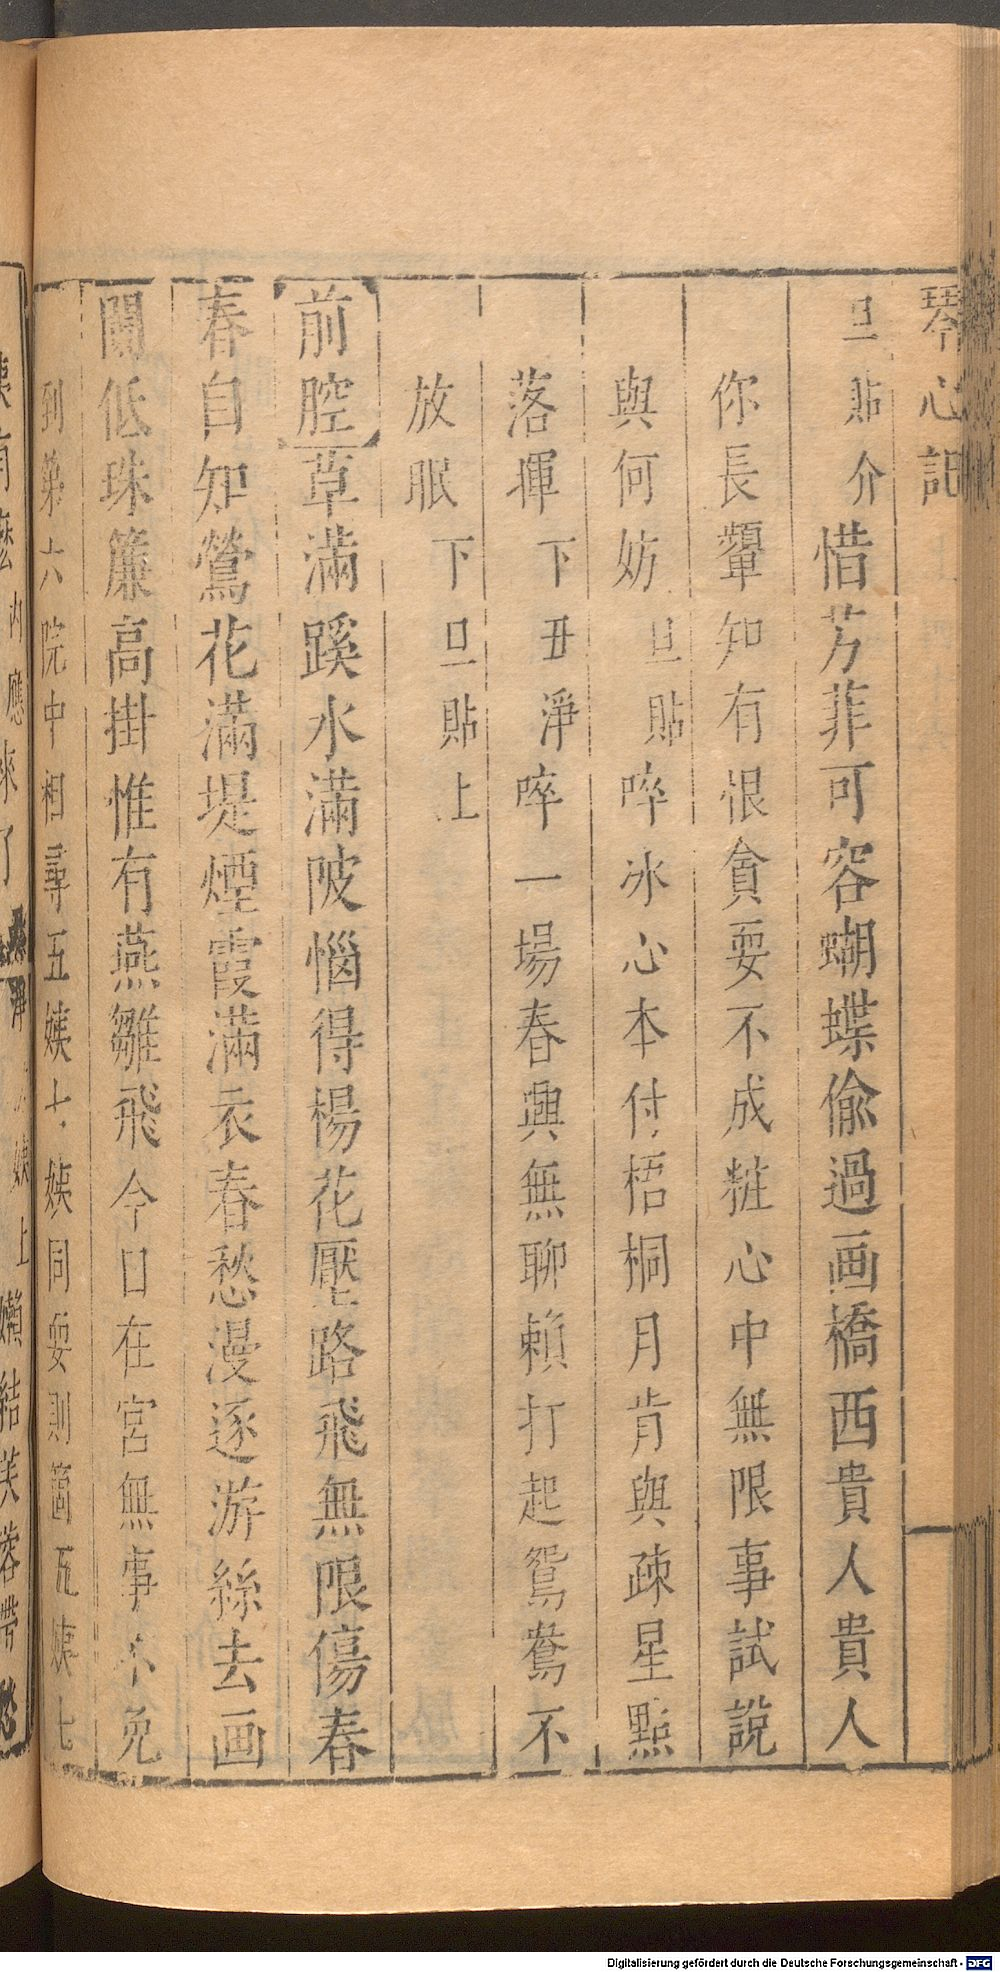 琴心記
旦貼介惜芳菲可容蝴蝶偷過画橋西貴人貴人
你長顰知有恨貪耍不成粧心中無限事試說
與何妨旦貼啐冰心本付梧桐月肯與疎星點
落揮下丑淨啐一場春興無聊賴打起鴛鴦不
放眠下旦貼上
前腔草滿蹊水滿陂惱得楊花壓路飛無限傷春
春自知鶯花滿堤煙霞滿衣春愁漫逐游絲去画
闌低珠簾高掛惟有燕雛飛今日在宮無事不免
到第六院中相尋五姨七姨同耍則箇五姨七
姨有麽內應來了淨 姨上嬾結芙蓉帶愁
Digitalisierung gefördert durch die Deutsche Forschungsgemeinschaft - DFG